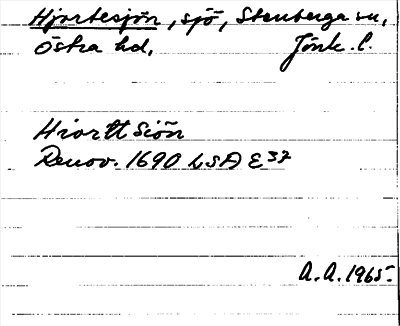 Hjortesjön, sjö, Stenberga sn,
Östra hd. Jönk. l.
Hiortt Siön
Renov. 1690 LSA E37
A.A. 1965